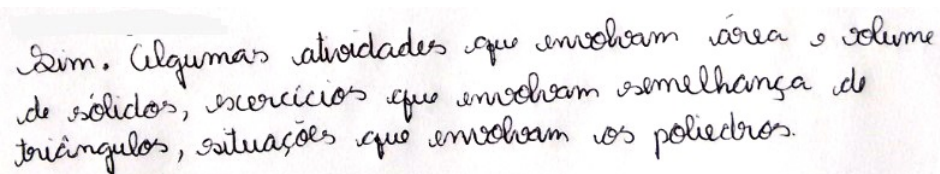 Sim. Algumas atividades que envolvam área e volume
de sólidos, exercícios que envolvam semelhança de
triângulos, situações que envolvam os poliedros.